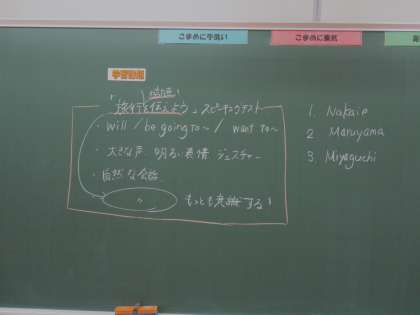 こまめに手洗い
こまめに換気
学習課題
「旅行を伝えよう」スピーキングテスト
・will / be going to ~ / want to ~
・大きな声 明るい表情 ジェスチャー
・自然な会話
もっとも意識する!
1. Nakaie
2. Maruyama
3. Miyaguchi